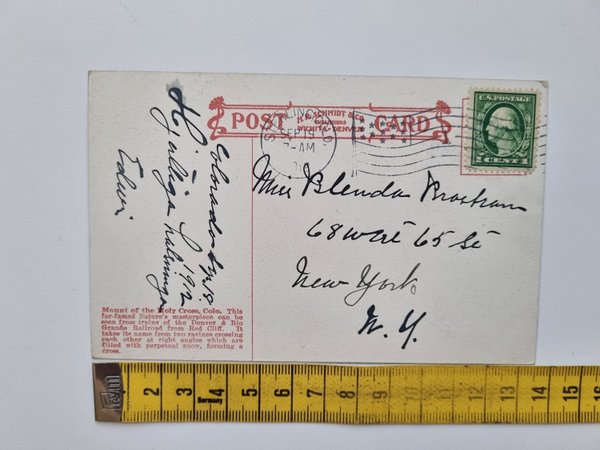 POST CARD
H.H. SCHMIDT & CO.
WICHITA - DENVER
SEP 19
7-AM
U.S. POSTAGE
1 CENT 1
Colorado
Hjärtliga hälsningar
Edwin
1912
Miss Blenda Brostrom
68 West 65 St
New York
N. Y.
Mount of the Holy Cross, Colo. This
far-famed Nature's masterpiece can be
seen from trains of the Denver & Rio
Grande Railroad from Red Cliff. It
takes its name from two ravines crossing
each other at right angles which are
filled with perpetual snow, forming a
cross.
2 3 4 5 6 7 8 9 10 11 12 13 14 15 16
Germany